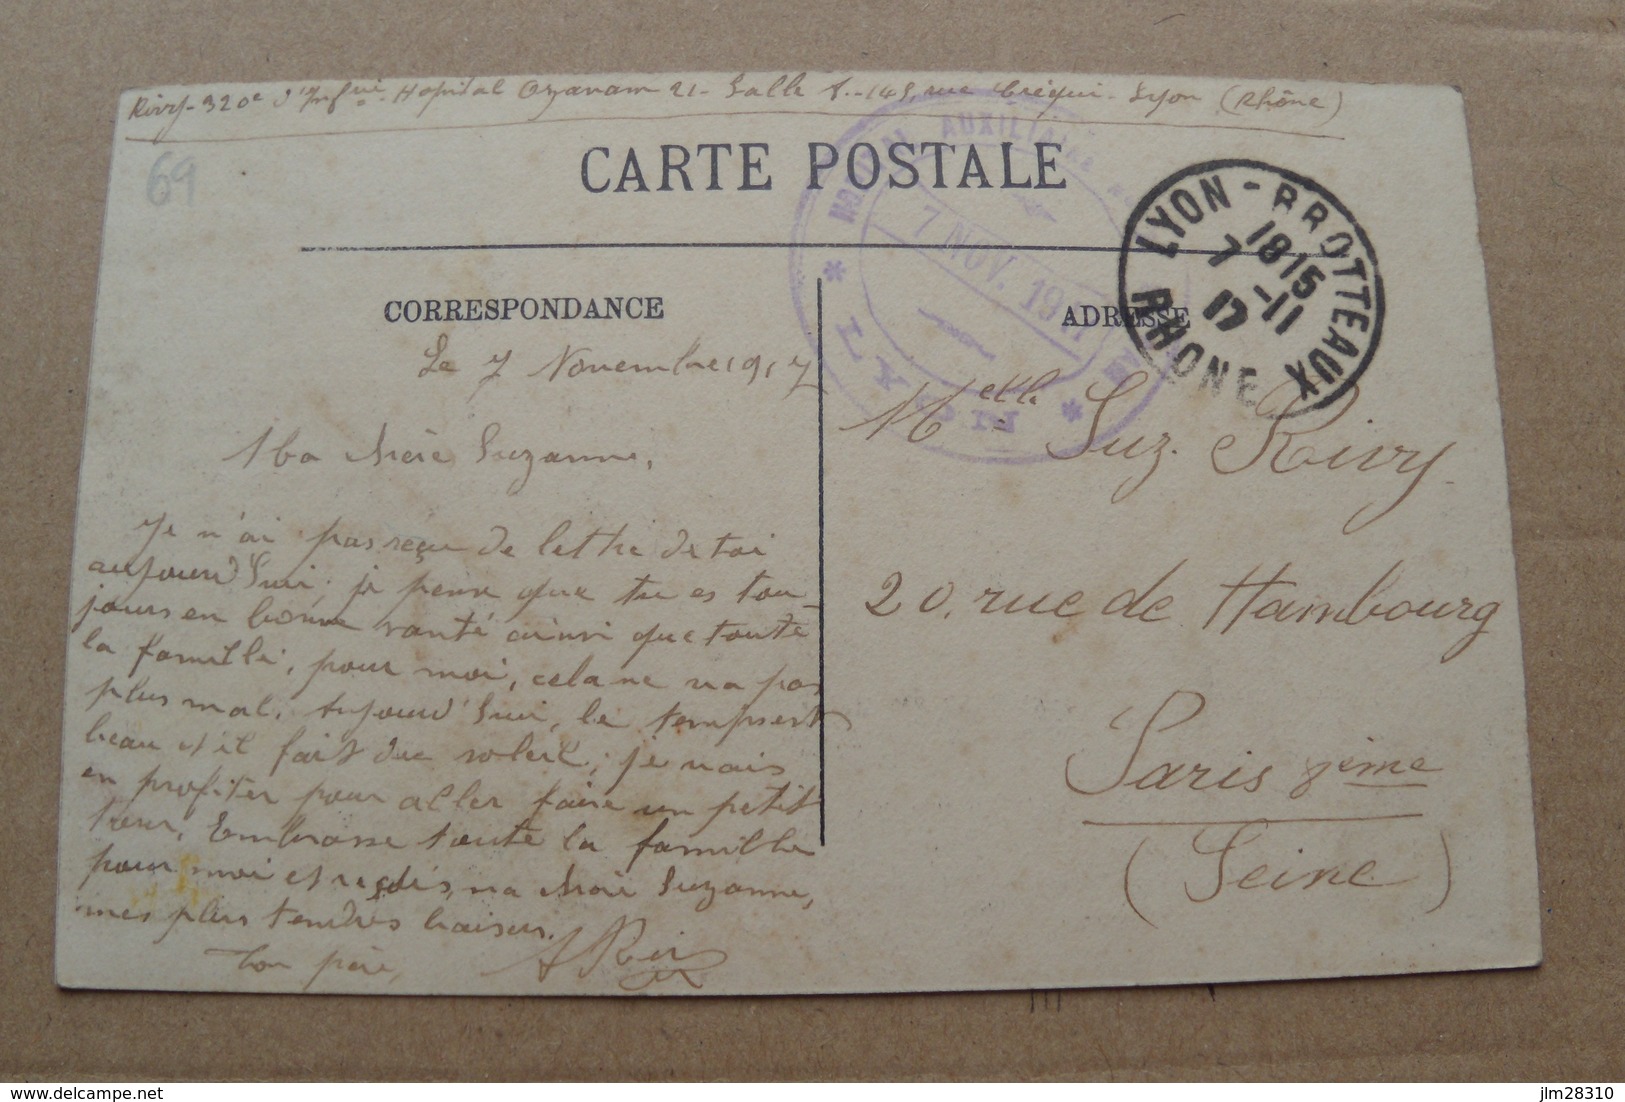 Rivry-320e d'Infie. Hopital Ozanam 21- Salle 8.-145, rue Créqui- Lyon (Rhône)
69
CARTE POSTALE
HOPITAL AUXILIAIRE
7 NOV. 1917
LYON
LYON-BROTTEAUX
1815
7-11
17
RHONE
CORRESPONDANCE
ADRESSE
Le 7 Novembre 1917
Ma chère Suzanne,
Je n'ai pas reçu de lettre de toi
aujourd'hui, je pense que tu es tou-
jours en bonne santé ainsi que toute
la famille, pour moi, cela ne va pas
plus mal. Aujourd'hui, le temps est
beau et il fait du soleil; je vais
en profiter pour aller faire un petit
tour. Embrasse toute la famille
pour moi et reçois, ma chère Suzanne,
mes plus tendres baisers.
Ton père,
Metlle Suz. Rivry
20, rue de Hambourg
Paris 8ème
(Seine)
jlm28310